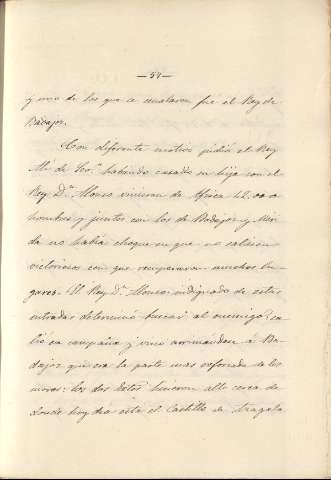 — 54 —
y uno de los que se mataron fué el Rey de
Badajoz.
Con diferente motivo pidió el Rey
de habiendo casado su hija con el
Rey Dn. Alonso vinieran de Africa 42.000
hombres y juntos con los de Badajoz y Meri-
da no había choque en que no salieran
victoriosos con que recuperaron muchos lu-
gares. El Rey Dn. Alonso indignado de estas
entradas determinó buscar al enemigo; sa-
lió en campaña y vino arrimandose á Ba-
dajoz que era la parte mas reforzada de los
moros: los dos dieron alli cerca de
donde hoy dia está el Castillo de Azagala